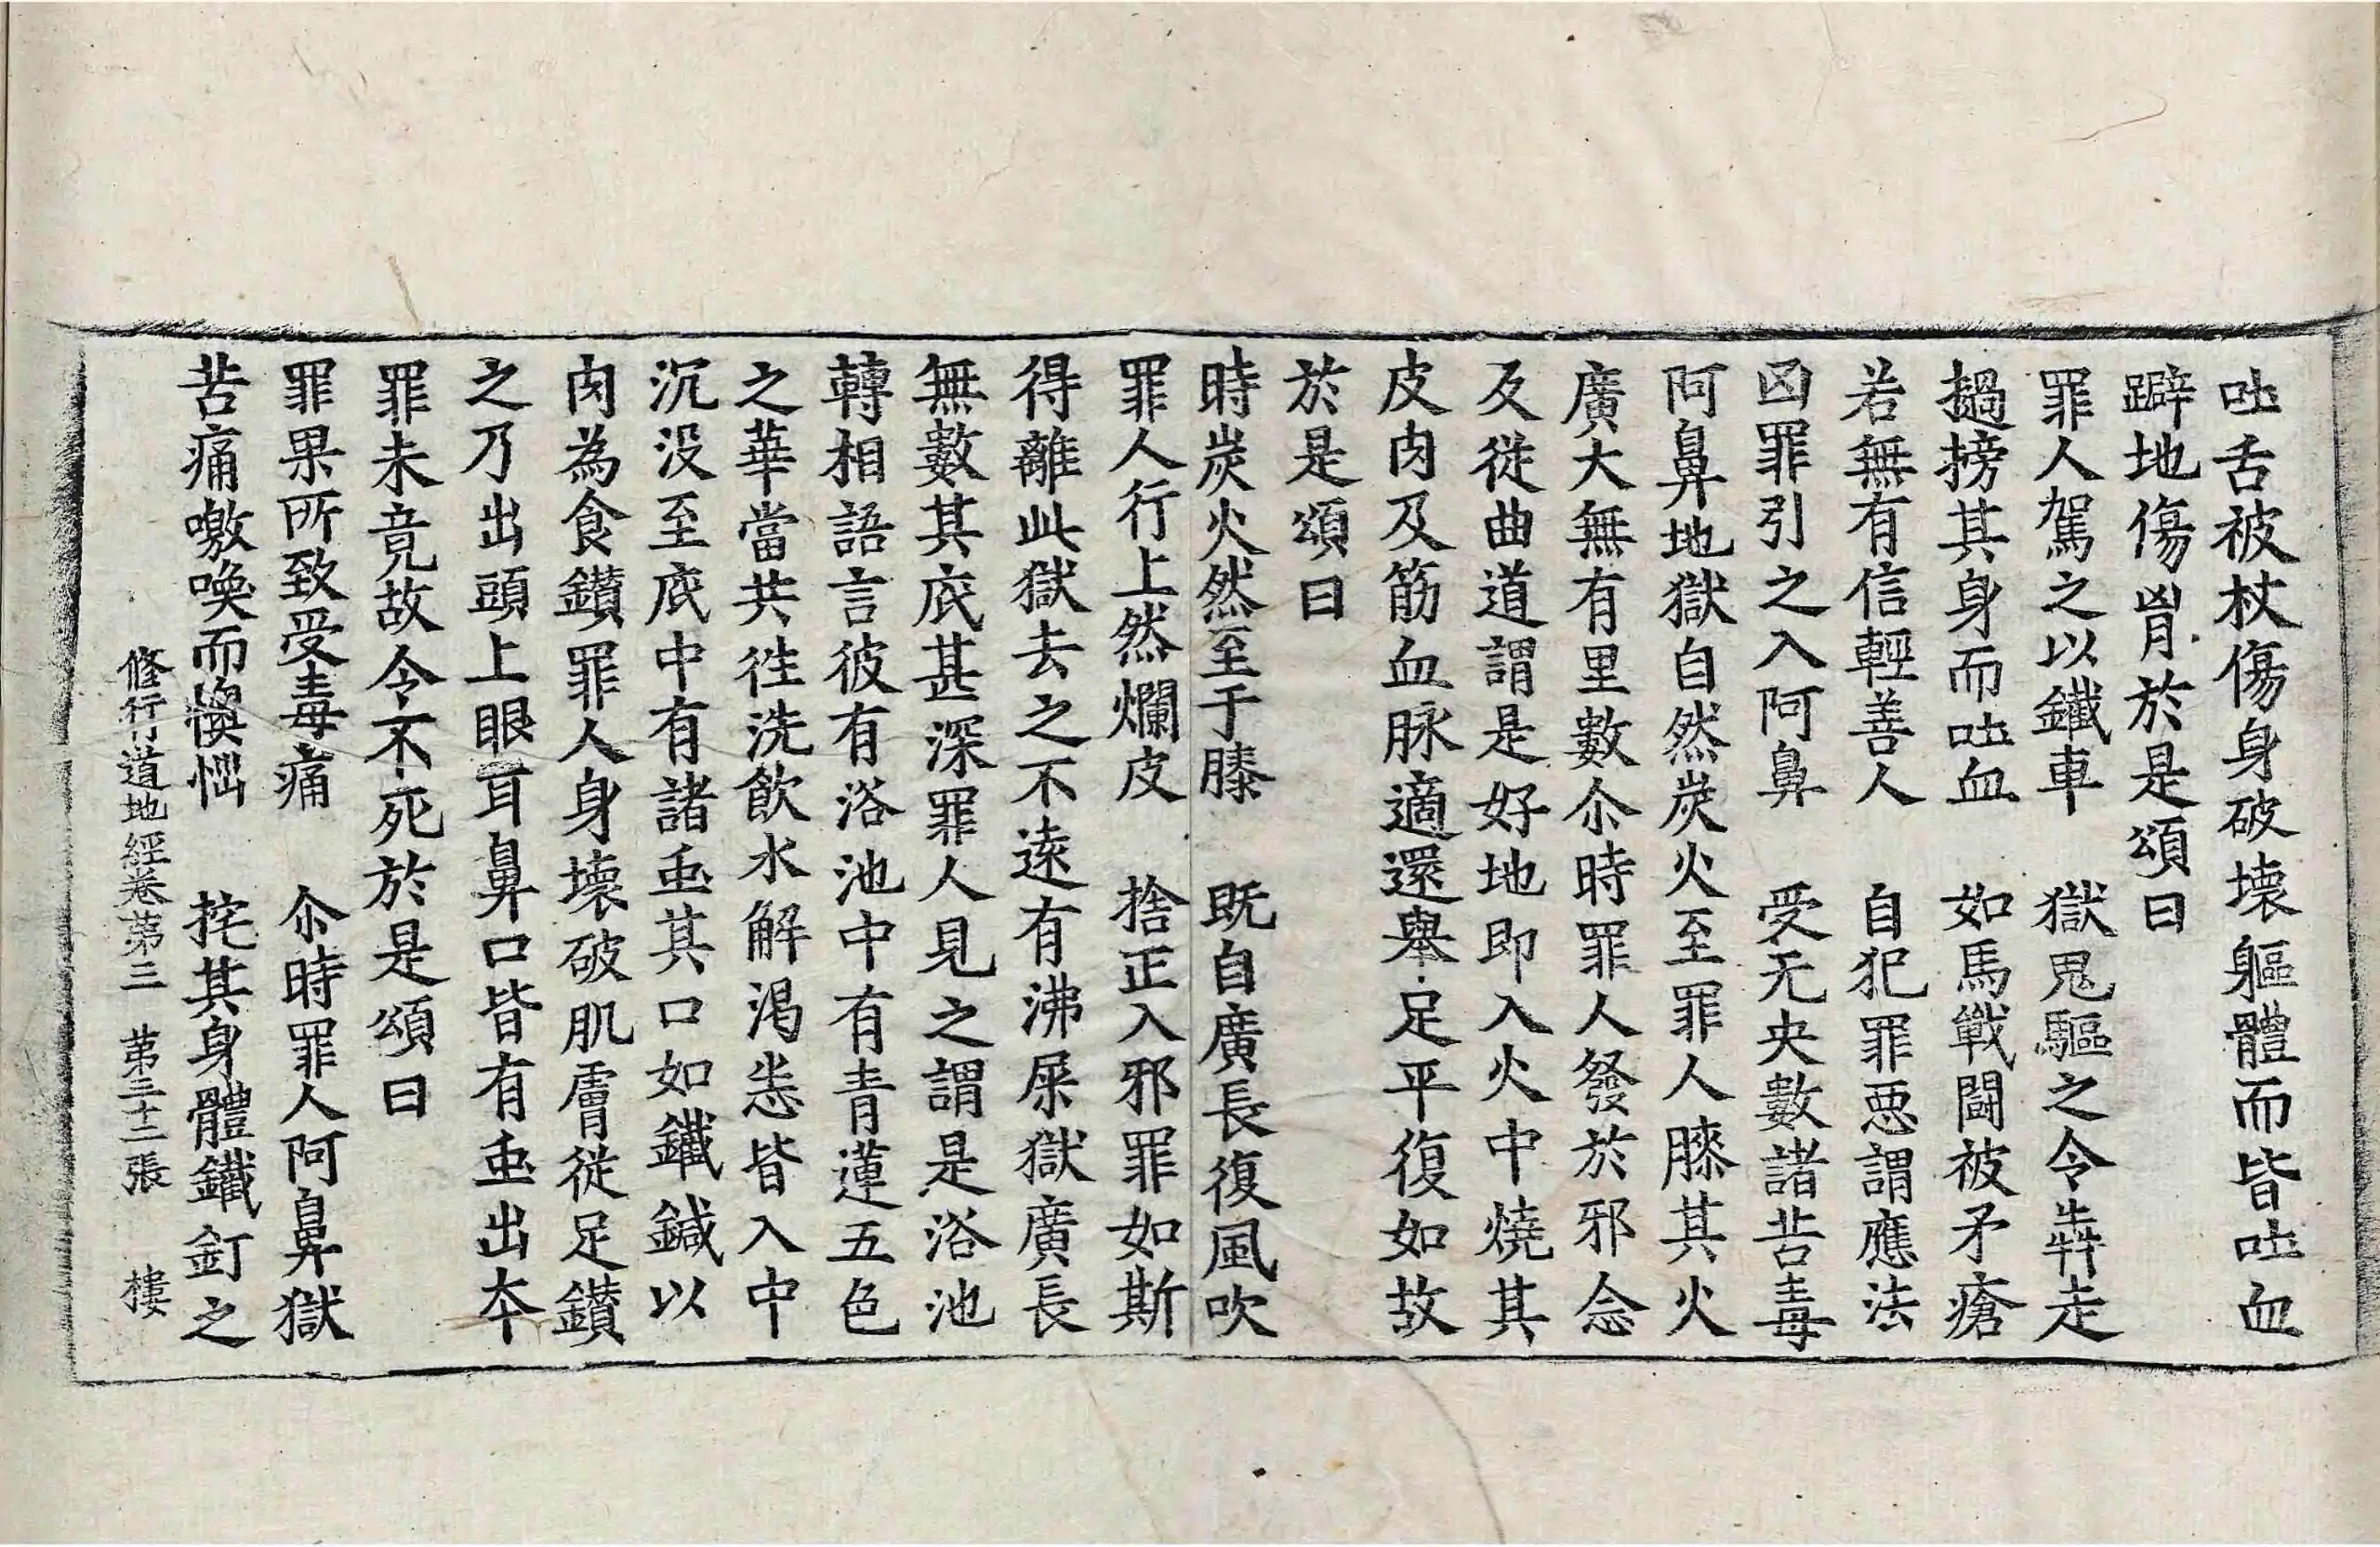 吐舌被杖傷身破壞軀體而皆吐血
躃地傷胷於是頌曰
罪人駕之以鐵車　獄鬼驅之令犇走
撾搒其身而吐血　如馬戰鬪被矛瘡
若無有信輕善人　自犯罪惡謂應法
凶罪引之入阿鼻　受无央數諸苦毒
阿鼻地獄自然炭火至罪人膝其火
廣大無有里數尒時罪人發於邪念
及從曲道謂是好地即入火中燒其
皮肉及筋血脉適還舉足平復如故
於是頌曰
時炭火然至于膝　既自廣長復風吹
罪人行上然爛皮　捨正入邪罪如斯
得離此獄去之不遠有沸屎獄廣長
無數其底甚深罪人見之謂是浴池
轉相語言彼有浴池中有青蓮五色
之華當共往洗飲水解渴悉皆入中
沉没至底中有諸䖝其口如鐵鍼以
肉為食鑽罪人身壞破肌膚從足鑽
之乃出頭上眼耳鼻口皆有䖝出夲
罪未竟故令不死於是頌曰
罪果所致受毒痛　尒時罪人阿鼻獄
苦痛噭喚而懊㤕　挓其身體鐵釘之
修行道地經卷第三　第三十二張　樓